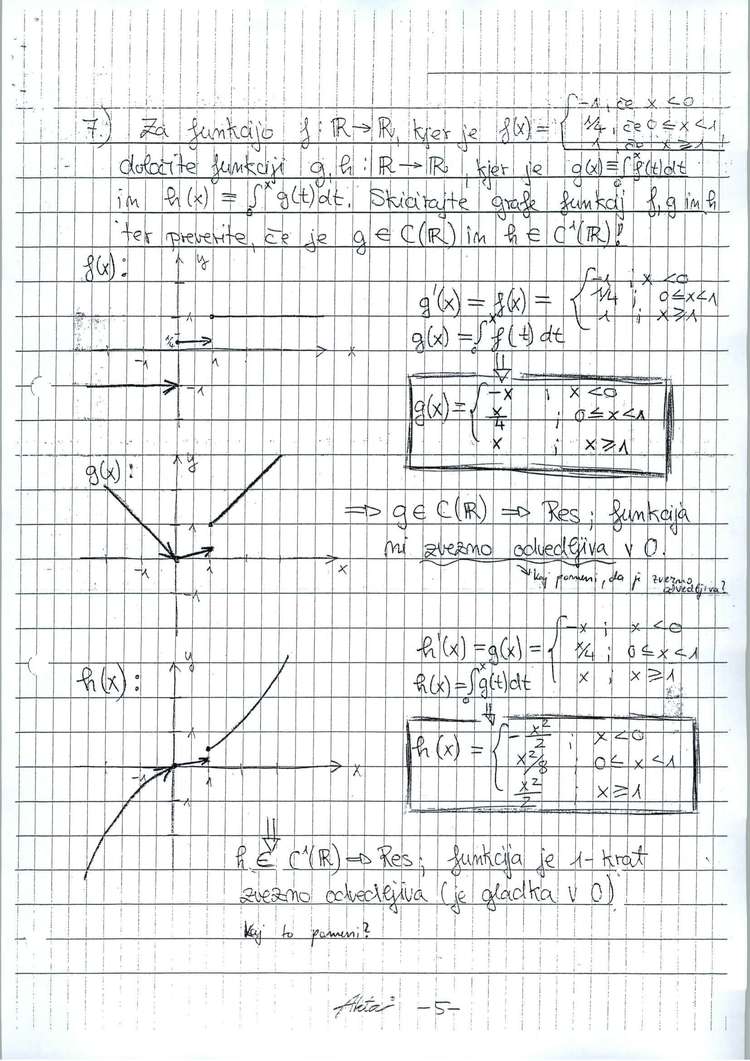 7.) Za funkcijo f: ℝ→ℝ, kjer je f(x) = { -1, če x < 0
1/4, če 0 ≤ x < 1
1, če x ≥ 1
določite funkciji g, h : ℝ→ℝ, kjer je g(x) ≡ ∫₀ˣ f(t)dt
in h(x) ≡ ∫₀ˣ g(t)dt. Skicirajte grafe funkcij f, g in h
ter preverite, če je g ∈ C(ℝ) in h ∈ C¹(ℝ)!
f(x):
y
1
1/4
-1
1
x
-1
g'(x) = f(x) = { -1 ; x < 0
1/4 ; 0 ≤ x < 1
1 ; x ≥ 1
g(x) = ∫₀ˣ f(t) dt
⇓
g(x) = { -x ; x < 0
x/4 ; 0 ≤ x < 1
x ; x ≥ 1
g(x):
y
1
-1
1
x
-1
⇒ g ∈ C(ℝ) ⇒ Res; funkcija
ni zvezno odvedljiva v 0.
↳ kaj pomeni, da je zvezno
odvedljiva?
h(x):
y
1
-1
1
x
-1
h'(x) = g(x) = { -x ; x < 0
x/4 ; 0 ≤ x < 1
x ; x ≥ 1
h(x) = ∫₀ˣ g(t)dt
⇓
h(x) = { -x²/2 ; x < 0
x²/8 ; 0 ≤ x < 1
x²/2 ; x ≥ 1
⇓
h ∈ C¹(ℝ) ⇒ Res; funkcija je 1-krat
zvezno odvedljiva (je gladka v 0)
kaj to pomeni?
-5-